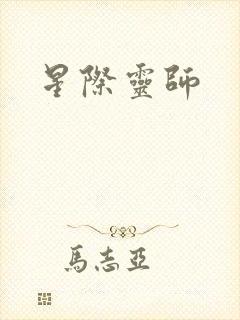 星際靈師
馬志亞